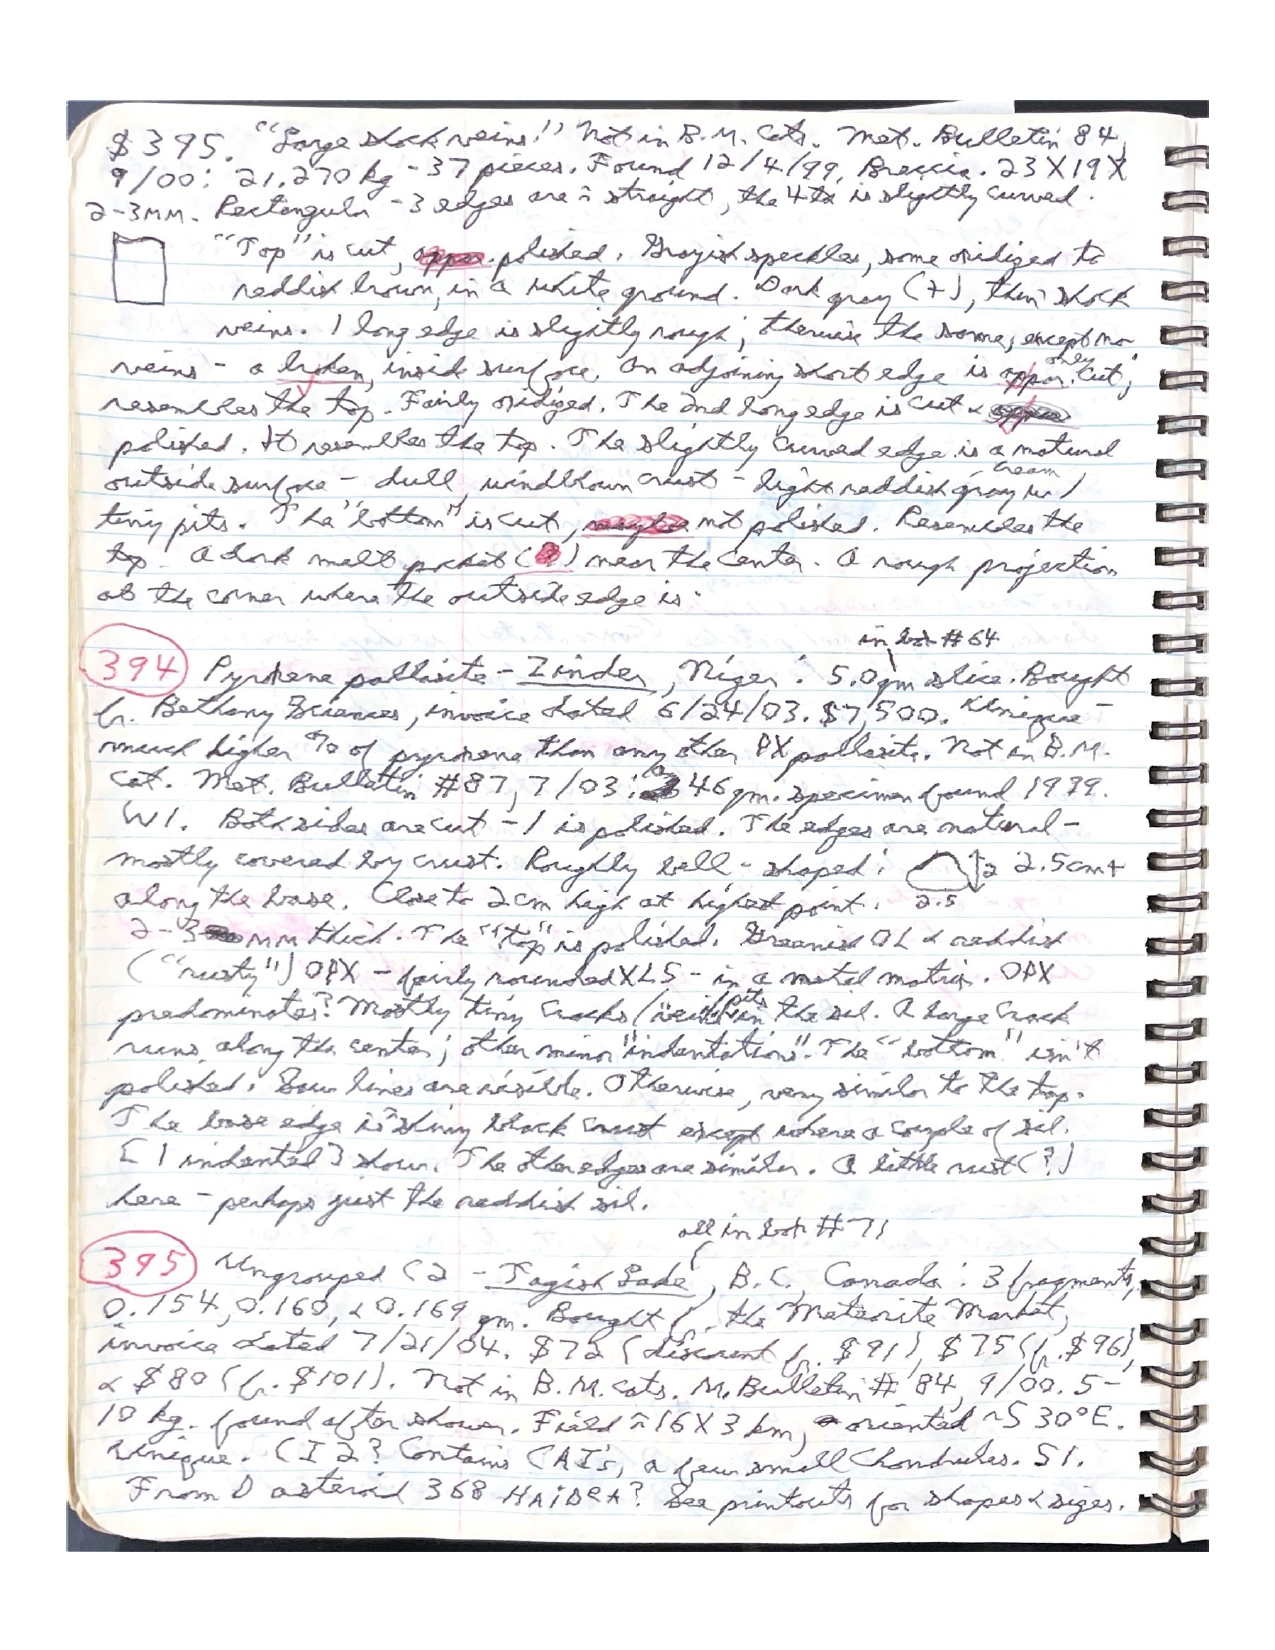 $395. "Large shock veins!" Not in B.M. Cats. Met. Bulletin 84,
9/00: 21.270 kg - 37 pieces. Found 12/4/99. Breccia. 23X19X
2-3MM. Rectangular - 3 edges are ≈ straight, the 4th is slightly curved.
"Top" is cut, polished. Grayish speckles, some oxidized to
reddish brown, in a white ground. Dark gray (+), thin shock
veins. 1 long edge is slightly rough; otherwise the same, except no
veins - a broken, inside surface. An adjoining short edge is only cut;
resembles the top. Fairly oxidized. The 2nd long edge is cut &
polished. It resembles the top. The slightly curved edge is a natural
outside surface - dull, windblown crust - light reddish gray cream w/
tiny pits. The "bottom" is cut, not polished. Resembles the
top. A dark melt pocket (?) near the center. A rough projection
at the corner where the outside edge is.
in box #64
394 Pyroxene pallasite - Zinder, Niger: 5.0gm slice. Bought
fr. Bethany Sciences, invoice dated 6/24/03. $7,500. Unique -
much higher % of pyroxene than any other PX pallasite. Not in B.M.
Cat. Met. Bulletin #87, 7/03: a 46 gm. specimen found 1999.
W1. Both sides are cut - 1 is polished. The edges are natural -
mostly covered by crust. Roughly bell-shaped: 2 2.5cm+
along the base. Close to 2cm high at highest point. 2.5
2-3 MM thick. The "top" is polished. Greenish OL & reddish
("rusty") OPX - fairly rounded XLS - in a metal matrix. OPX
predominates? Mostly tiny cracks/"veins"/pits in the sil. A large crack
runs along the center; other minor "indentations". The "bottom" isn't
polished. Saw lines are visible. Otherwise, very similar to the top.
The base edge is ≈ shiny black crust except where a couple of sil.
[1 indented] show. The other edges are similar. A little rust (?)
here - perhaps just the reddish sil.
all in box #71
395 Ungrouped C2 - Tagish Lake, B.C. Canada: 3 fragments,
0.154, 0.160, & 0.169 gm. Bought fr. the Meteorite Market,
invoice dated 7/21/04. $72 (discount fr. $91), $75 (fr. $96),
& $80 (fr. $101). Not in B.M. Cats. M. Bulletin # 84, 9/00. 5-
10 kg. found after shower. Field ≈ 16 X 3 km, oriented ~S 30°E.
Unique. CI2? Contains CAI's, a few small Chondrules. S1.
From D asteroid 368 HAIDEA? See printouts for shapes & sizes.